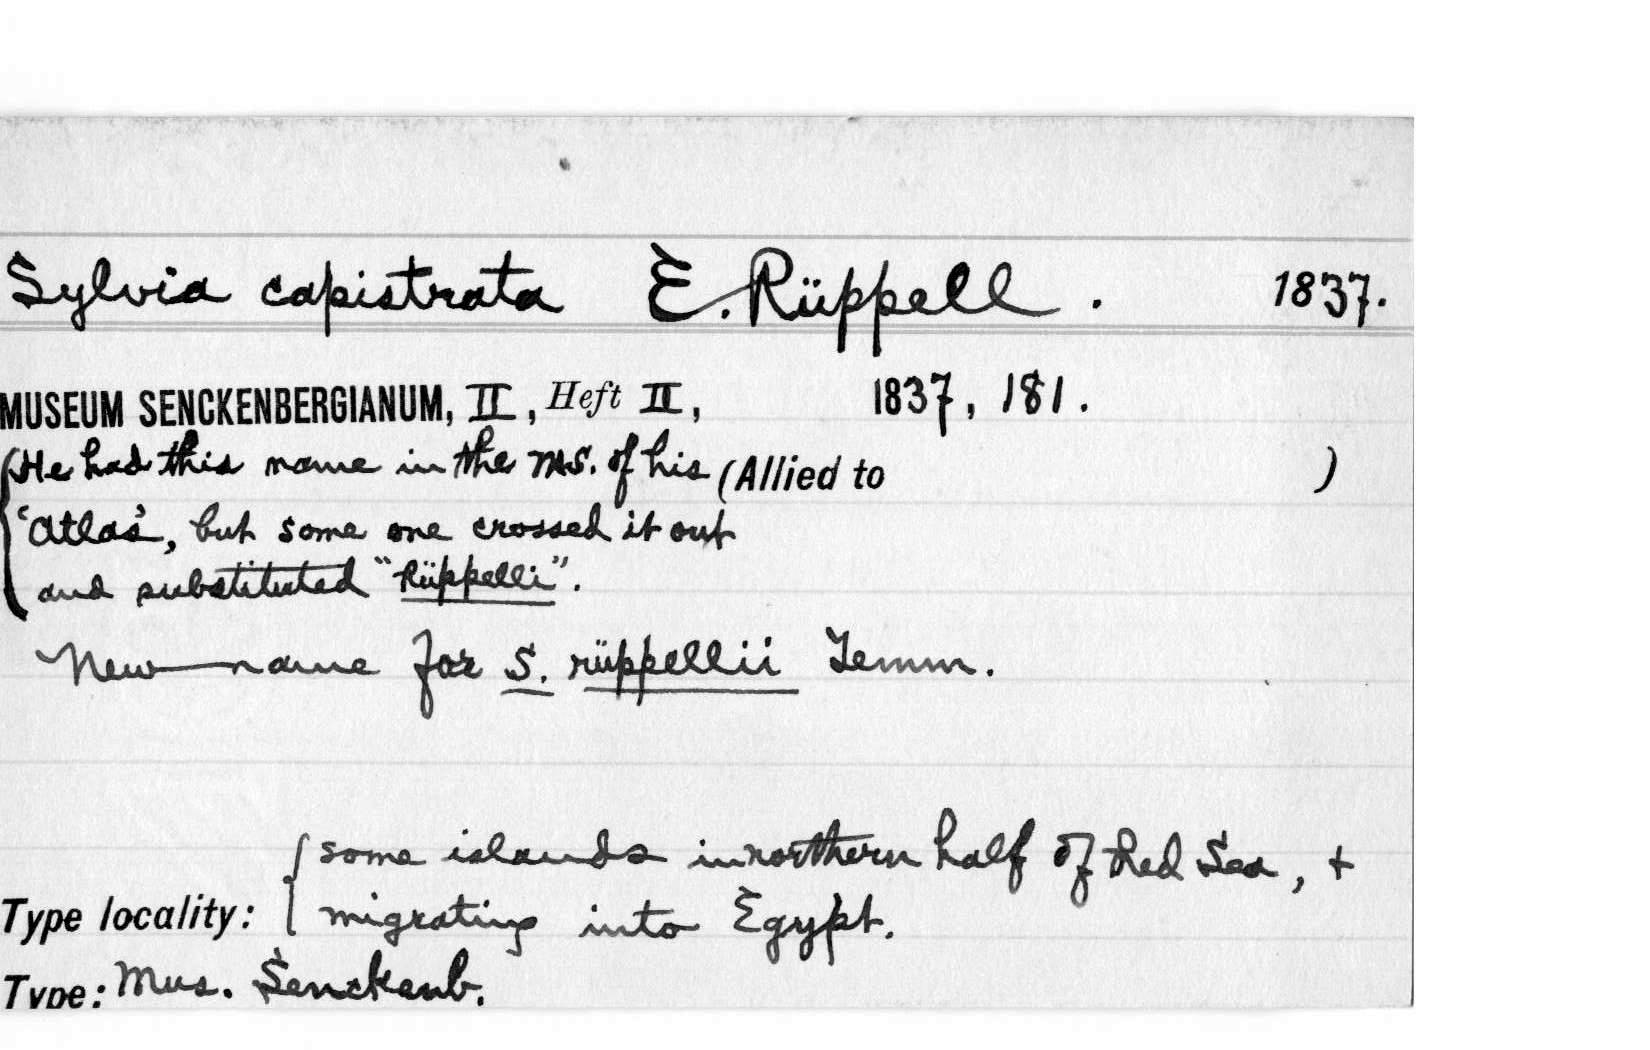 Sylvia capistrata E. Rüppell. 1837.
MUSEUM SENCKENBERGIANUM, II, Heft II, 1837, 181.
{He had this name in the MS. of his (Allied to )
'Atlas', but some one crossed it out
and substituted "Rüppelli".
New name for S. rüppellii Temm.
{some islands in northern half of Red Sea, +
Type locality: migrating into Egypt.
Type: Mus. Senckenb.